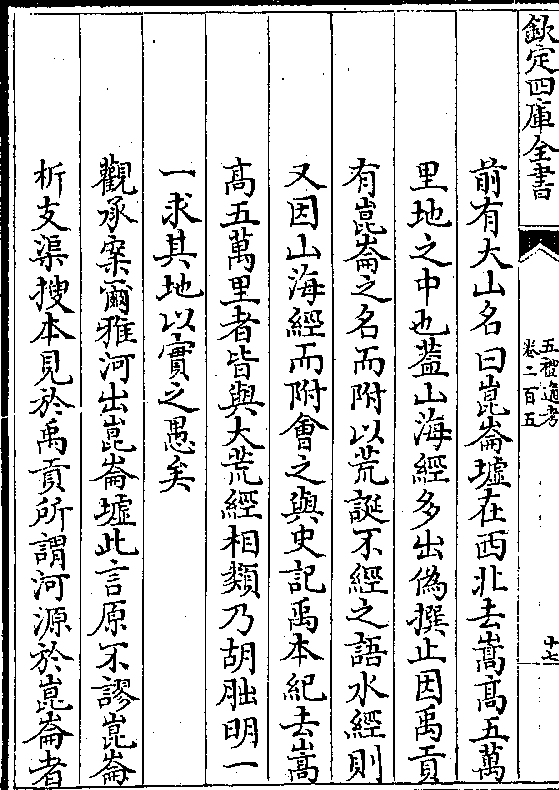 欽定四庫全書
五禮通考
卷二百五
十二
前有大山名曰崑崙墟在西北去嵩高五萬
里地之中也葢山海經多出偽撰止因禹貢
有崑崙之名而附以荒誕不經之語水經則
又因山海經而附會之與史記禹本紀去嵩
高五萬里者皆與大荒經相類乃胡朏明一
一求其地以實之愚矣
觀承案爾雅河出崑崙墟此言原不謬崑崙
析支渠搜本見於禹貢所謂河源於崑崙者